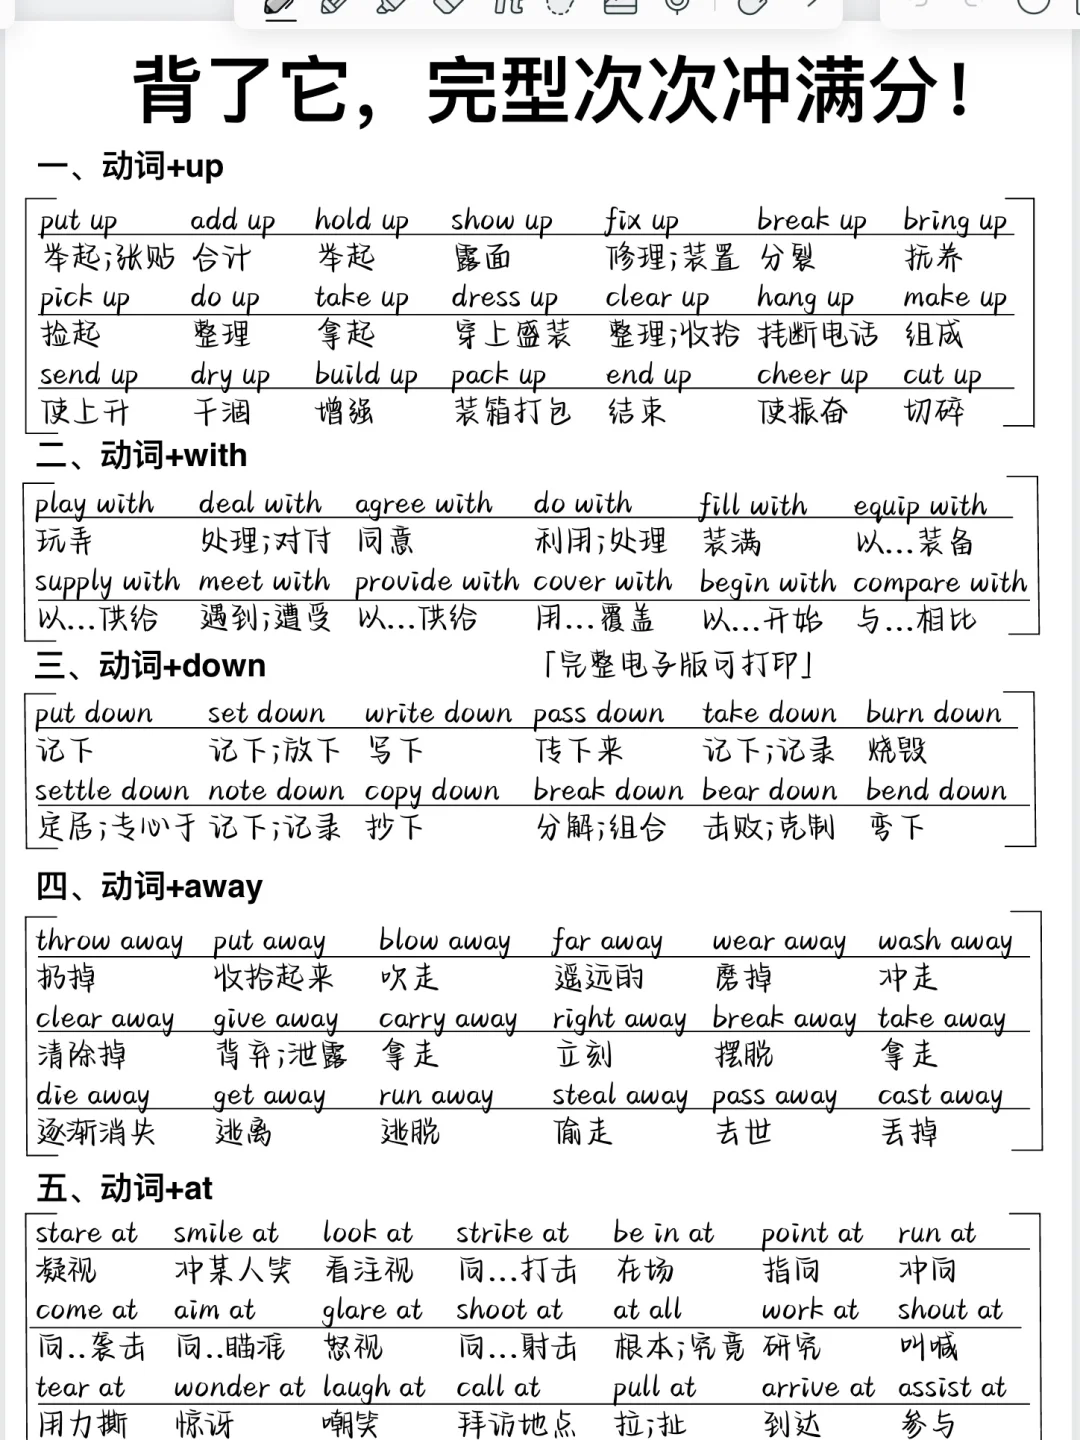 背了它，完型次次冲满分！
一、动词+up
put up add up hold up show up fix up break up bring up
举起;张贴 合计 举起 露面 修理;装置 分裂 抚养
pick up do up take up dress up clear up hang up make up
捡起 整理 拿起 穿上盛装 整理;收拾 挂断电话 组成
send up dry up build up pack up end up cheer up cut up
使上升 干涸 增强 装箱打包 结束 使振奋 切碎
二、动词+with
play with deal with agree with do with fill with equip with
玩弄 处理;对付 同意 利用;处理 装满 以...装备
supply with meet with provide with cover with begin with compare with
以...供给 遇到;遭受 以...供给 用...覆盖 以...开始 与...相比
三、动词+down 「完整电子版可打印」
put down set down write down pass down take down burn down
记下 记下;放下 写下 传下来 记下;记录 烧毁
settle down note down copy down break down bear down bend down
定居;专心于 记下;记录 抄下 分解;组合 击败;克制 弯下
四、动词+away
throw away put away blow away far away wear away wash away
扔掉 收拾起来 吹走 遥远的 磨掉 冲走
clear away give away carry away right away break away take away
清除掉 背弃;泄露 拿走 立刻 摆脱 拿走
die away get away run away steal away pass away cast away
逐渐消失 逃离 逃脱 偷走 去世 丢掉
五、动词+at
stare at smile at look at strike at be in at point at run at
凝视 冲某人笑 看注视 向...打击 在场 指向 冲向
come at aim at glare at shoot at at all work at shout at
向..袭击 向..瞄准 怒视 向...射击 根本;究竟 研究 叫喊
tear at wonder at laugh at call at pull at arrive at assist at
用力撕 惊讶 嘲笑 拜访地点 拉;扯 到达 参与